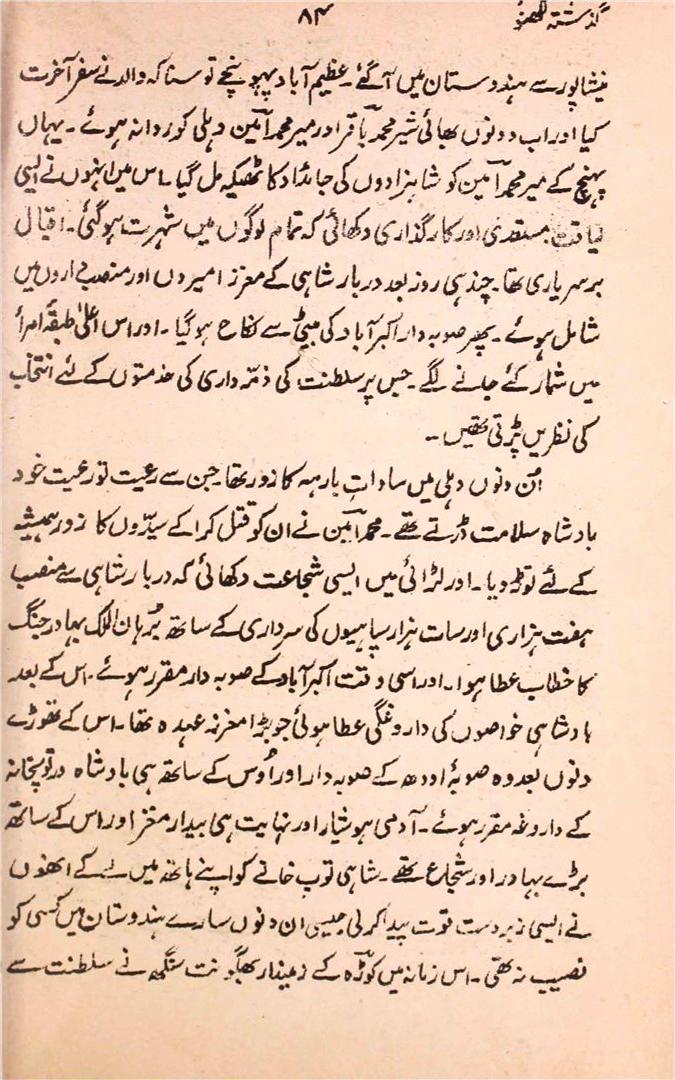 گذشتہ لکھنؤ ۸۴
نیشاپور سے ہندوستان میں آ گئے۔ عظیم آباد پہونچے تو سنا کہ والد نے سفر آخرت
کیا اور اب دونوں بھائی میر محمد باقر اور میر محمد امین دہلی کو روانہ ہوئے۔ یہاں
پہنچ کے میر محمد امین کو شاہزادوں کی جائداد کا ٹھیکہ مل گیا۔ اس میں انہوں نے ایسی
لیاقت، مستعدی اور کارگذاری دکھائی کہ تمام لوگوں میں شہرت ہو گئی۔ اقبال
برسر یاری تھا۔ چند ہی روز بعد دربار شاہی کے معزز امیروں اور منصب داروں میں
شامل ہوئے۔ پھر صوبہ دار اکبر آباد کی بیٹی سے نکاح ہو گیا۔ اور اس اعلیٰ طبقۂ امرأ
میں شمار کئے جانے لگے۔ جس پر سلطنت کی ذمّہ داری کی خدمتوں کے لئے انتخاب
کی نظریں پڑتی تھیں۔
اُن دنوں دہلی میں ساداتِ بارہہ کا زور تھا۔ جن سے رعیت تو رعیت خود
بادشاہ سلامت ڈرتے تھے۔ محمد امین نے ان کو قتل کرا کے سیدّوں کا زور ہمیشہ
کے لئے توڑ دیا۔ اور لڑائی میں ایسی شجاعت دکھائی کہ دربار شاہی سے منصب
ہفت ہزاری اور سات ہزار سپاہیوں کی سرداری کے ساتھ بُرہان الملک بہادر جنگ
کا خطاب عطا ہوا۔ اور اسی وقت اکبر آباد کے صوبہ دار مقرر ہوئے۔ اس کے بعد
بادشاہی خواصوں کی داروغگی عطا ہوئی جو بڑا معزز عہدہ تھا۔ اس کے تھوڑے
دنوں بعد وہ صوبۂ اودھ کے صوبہ دار اور اُوس کے ساتھ ہی بادشاہ در توپخانہ
کے داروغہ مقرر ہوئے۔ آدمی ہوشیار اور نہایت ہی بیدار مغز اور اس کے ساتھ
بڑے بہادر اور شجاع تھے۔ شاہی توپ خانے کو اپنے ہاتھ میں لے کے انھوں
نے ایسی زبردست قوت پیدا کر لی جیسی ان دنوں سارے ہندوستان میں کسی کو
نصیب نہ تھی۔ اس زمانہ میں کوڑہ کے زمیندار بھگونت سنگھ نے سلطنت سے